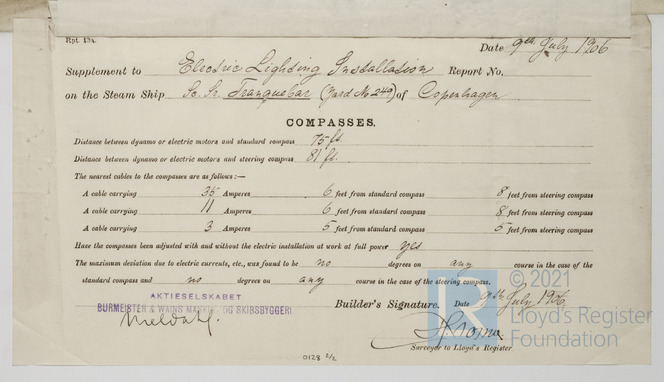 Rpt. 13A.
Date 9th July 1906
Supplement to Electric Lighting Installation Report No.
on the Steam Ship Sc. Sr. Tranquebar (Yard No 249) of Copenhagen
COMPASSES.
Distance between dynamo or electric motors and standard compass 75 ft.
Distance between dynamo or electric motors and steering compass 81 ft.
The nearest cables to the compasses are as follows:—
A cable carrying 35 Amperes 6 feet from standard compass 8 feet from steering compass
A cable carrying 11 Amperes 6 feet from standard compass 8 feet from steering compass
A cable carrying 3 Amperes 5 feet from standard compass 5 feet from steering compass
Have the compasses been adjusted with and without the electric installation at work at full power yes
The maximum deviation due to electric currents, etc., was found to be no degrees on any course in the case of the
standard compass and no degrees on any course in the case of the steering compass.
AKTIESELSKABET
BURMEISTER & WAINS MASKIN- OG SKIBSBYGGERI
Builder's Signature. Date 9th July, 1906
Surveyor to Lloyd's Register
0128 2/2
LR
© 2021
Lloyd's Register
Foundation